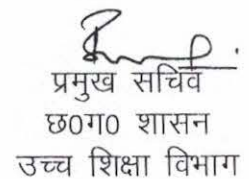 प्रमुख सचिव
छ0ग0 शासन
उच्च शिक्षा विभाग